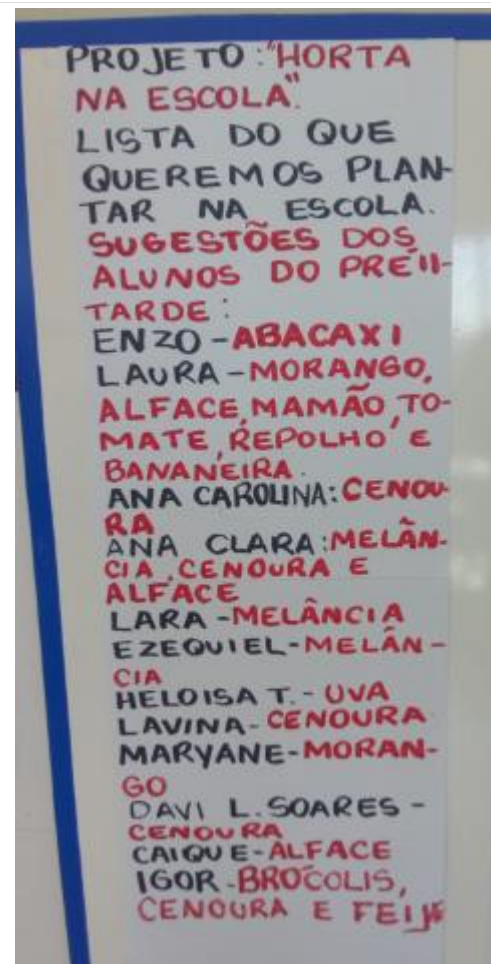 PROJETO:"HORTA
NA ESCOLA".
LISTA DO QUE
QUEREMOS PLAN-
TAR NA ESCOLA.
SUGESTÕES DOS
ALUNOS DO PRÉ II-
TARDE:
ENZO-ABACAXI
LAURA-MORANGO,
ALFACE, MAMÃO, TO-
MATE, REPOLHO E
BANANEIRA.
ANA CAROLINA: CENOU-
RA
ANA CLARA: MELÂN-
CIA, CENOURA E
ALFACE
LARA-MELÂNCIA
EZEQUIEL-MELÂN-
CIA
HELOISA T.-UVA
LAVINA-CENOURA
MARYANE-MORAN-
GO
DAVI L. SOARES-
CENOURA
CAIQUE-ALFACE
IGOR-BRÓCOLIS,
CENOURA E